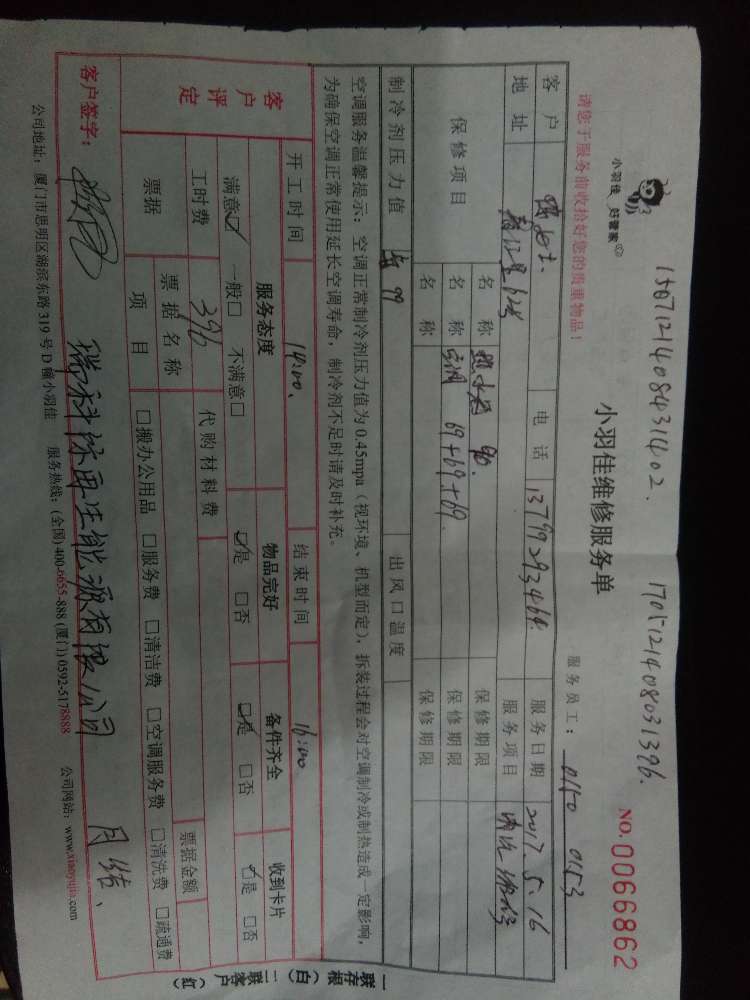 小羽佳 好管家
小羽佳维修服务单
NO.0066862
请您于服务前收拾好您的贵重物品！
服务员工： 0150 0153
客户 电话 13799293464 服务日期 2017.5.16
地址 服务项目
保修项目 名称 热水器 90. 保修期限
名称 空调 69+69+69. 保修期限
名称 保修期限
制冷剂压力值 出风口温度
空调服务温馨提示：空调正常制冷剂压力值为0.45mpa（视环境、机型而定），拆装过程会对空调制冷或制热造成一定影响，
为确保空调正常使用延长空调寿命，制冷剂不足时请及时补充。
开工时间 14:00. 结束时间 16:00
客户评定 服务态度 物品完好 备件齐全 收到卡片
满意☑ 一般□ 不满意□ ☑是 □否 ☑是 □否 ☑是 □否
工时费 396 代购材料费
票据 票据名称 票据金额
项目 □搬办公用品 □服务费 □清洁费 □空调服务费 □清洗费 □疏通费
客户签字： 瑞科际再生能源有限公司 月结、
公司地址：厦门市思明区湖滨东路319号D幢小羽佳 服务热线：(全国)400-6655-888 (厦门) 0592-5178888 公司网站：www.xiaoyujia.com
一联存根（白）二联客户（红）